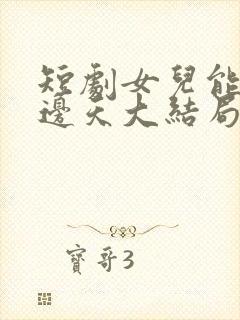 短劇女兒能
邊天大結局
寶哥3